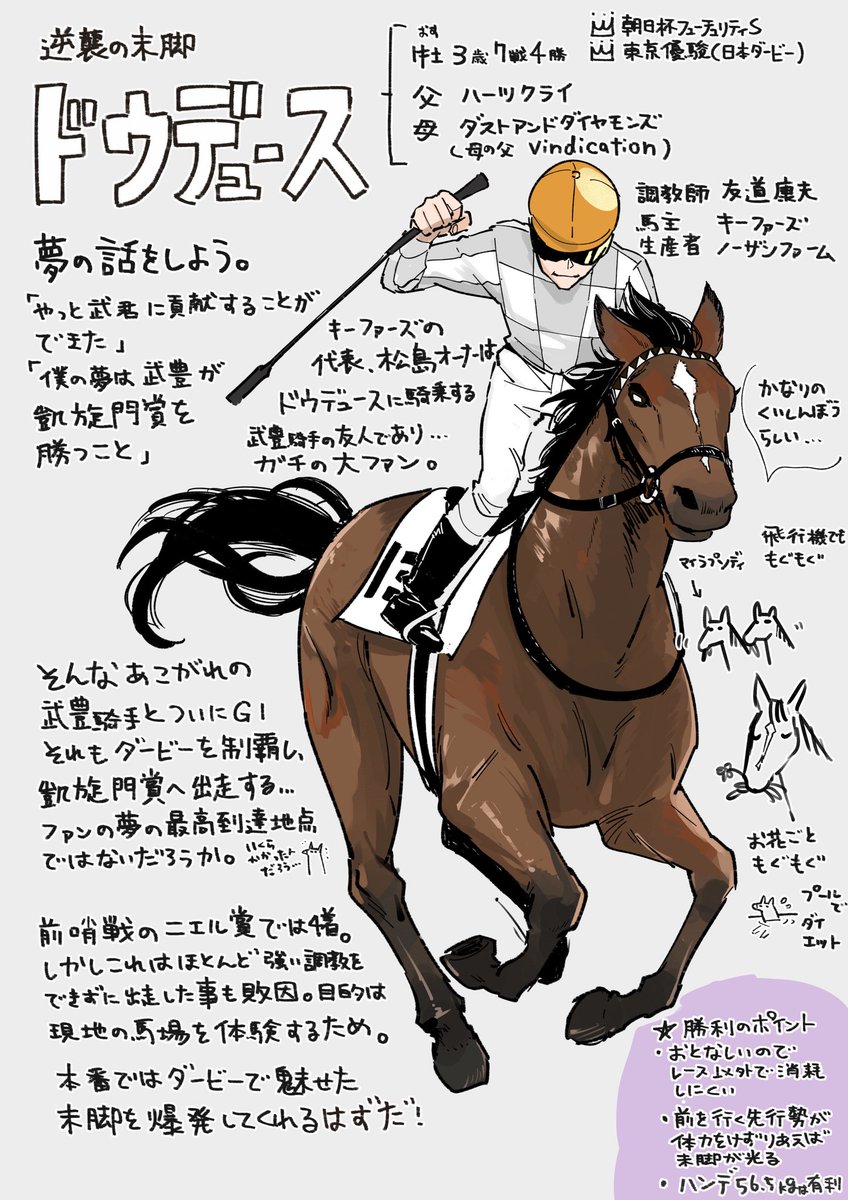 逆襲の末脚
ドウデュース
おす
牡 3歳7戦4勝
父 ハーツクライ
母 ダストアンドダイヤモンズ
(母の父 vindication)
朝日杯フューチュリティS
東京優駿(日本ダービー)
調教師 友道康夫
馬主 キーファーズ
生産者 ノーザンファーム
夢の話をしよう。
「やっと武君に貢献することが
できた」
「僕の夢は武豊が
凱旋門賞を
勝つこと」
キーファーズの
代表、松島オーナーは
ドウデュースに騎乗する
武豊騎手の友人であり…
ガチの大ファン。
かなりの
くいしんぼう
らしい…
飛行機でも
もぐもぐ
マイラプソディ
13
お花ごと
もぐもぐ
プールで
ダイ
エット
そんなあこがれの
武豊騎手とついにG1
それもダービーを制覇し、
凱旋門賞へ出走する…
ファンの夢の最高到達地点
ではないだろうか。
いくら
かかったん
だろう…
前哨戦のニエル賞では4着。
しかしこれはほとんど強い調教を
できずに出走した事も敗因。目的は
現地の馬場を体験するため。
本番ではダービーで魅せた
末脚を爆発してくれるはずだ!
★勝利のポイント
・おとなしいので
レース以外で消耗
しにくい
・前を行く先行勢が
体力をけずりあえば
末脚が光る
・ハンデ56.5kgは有利